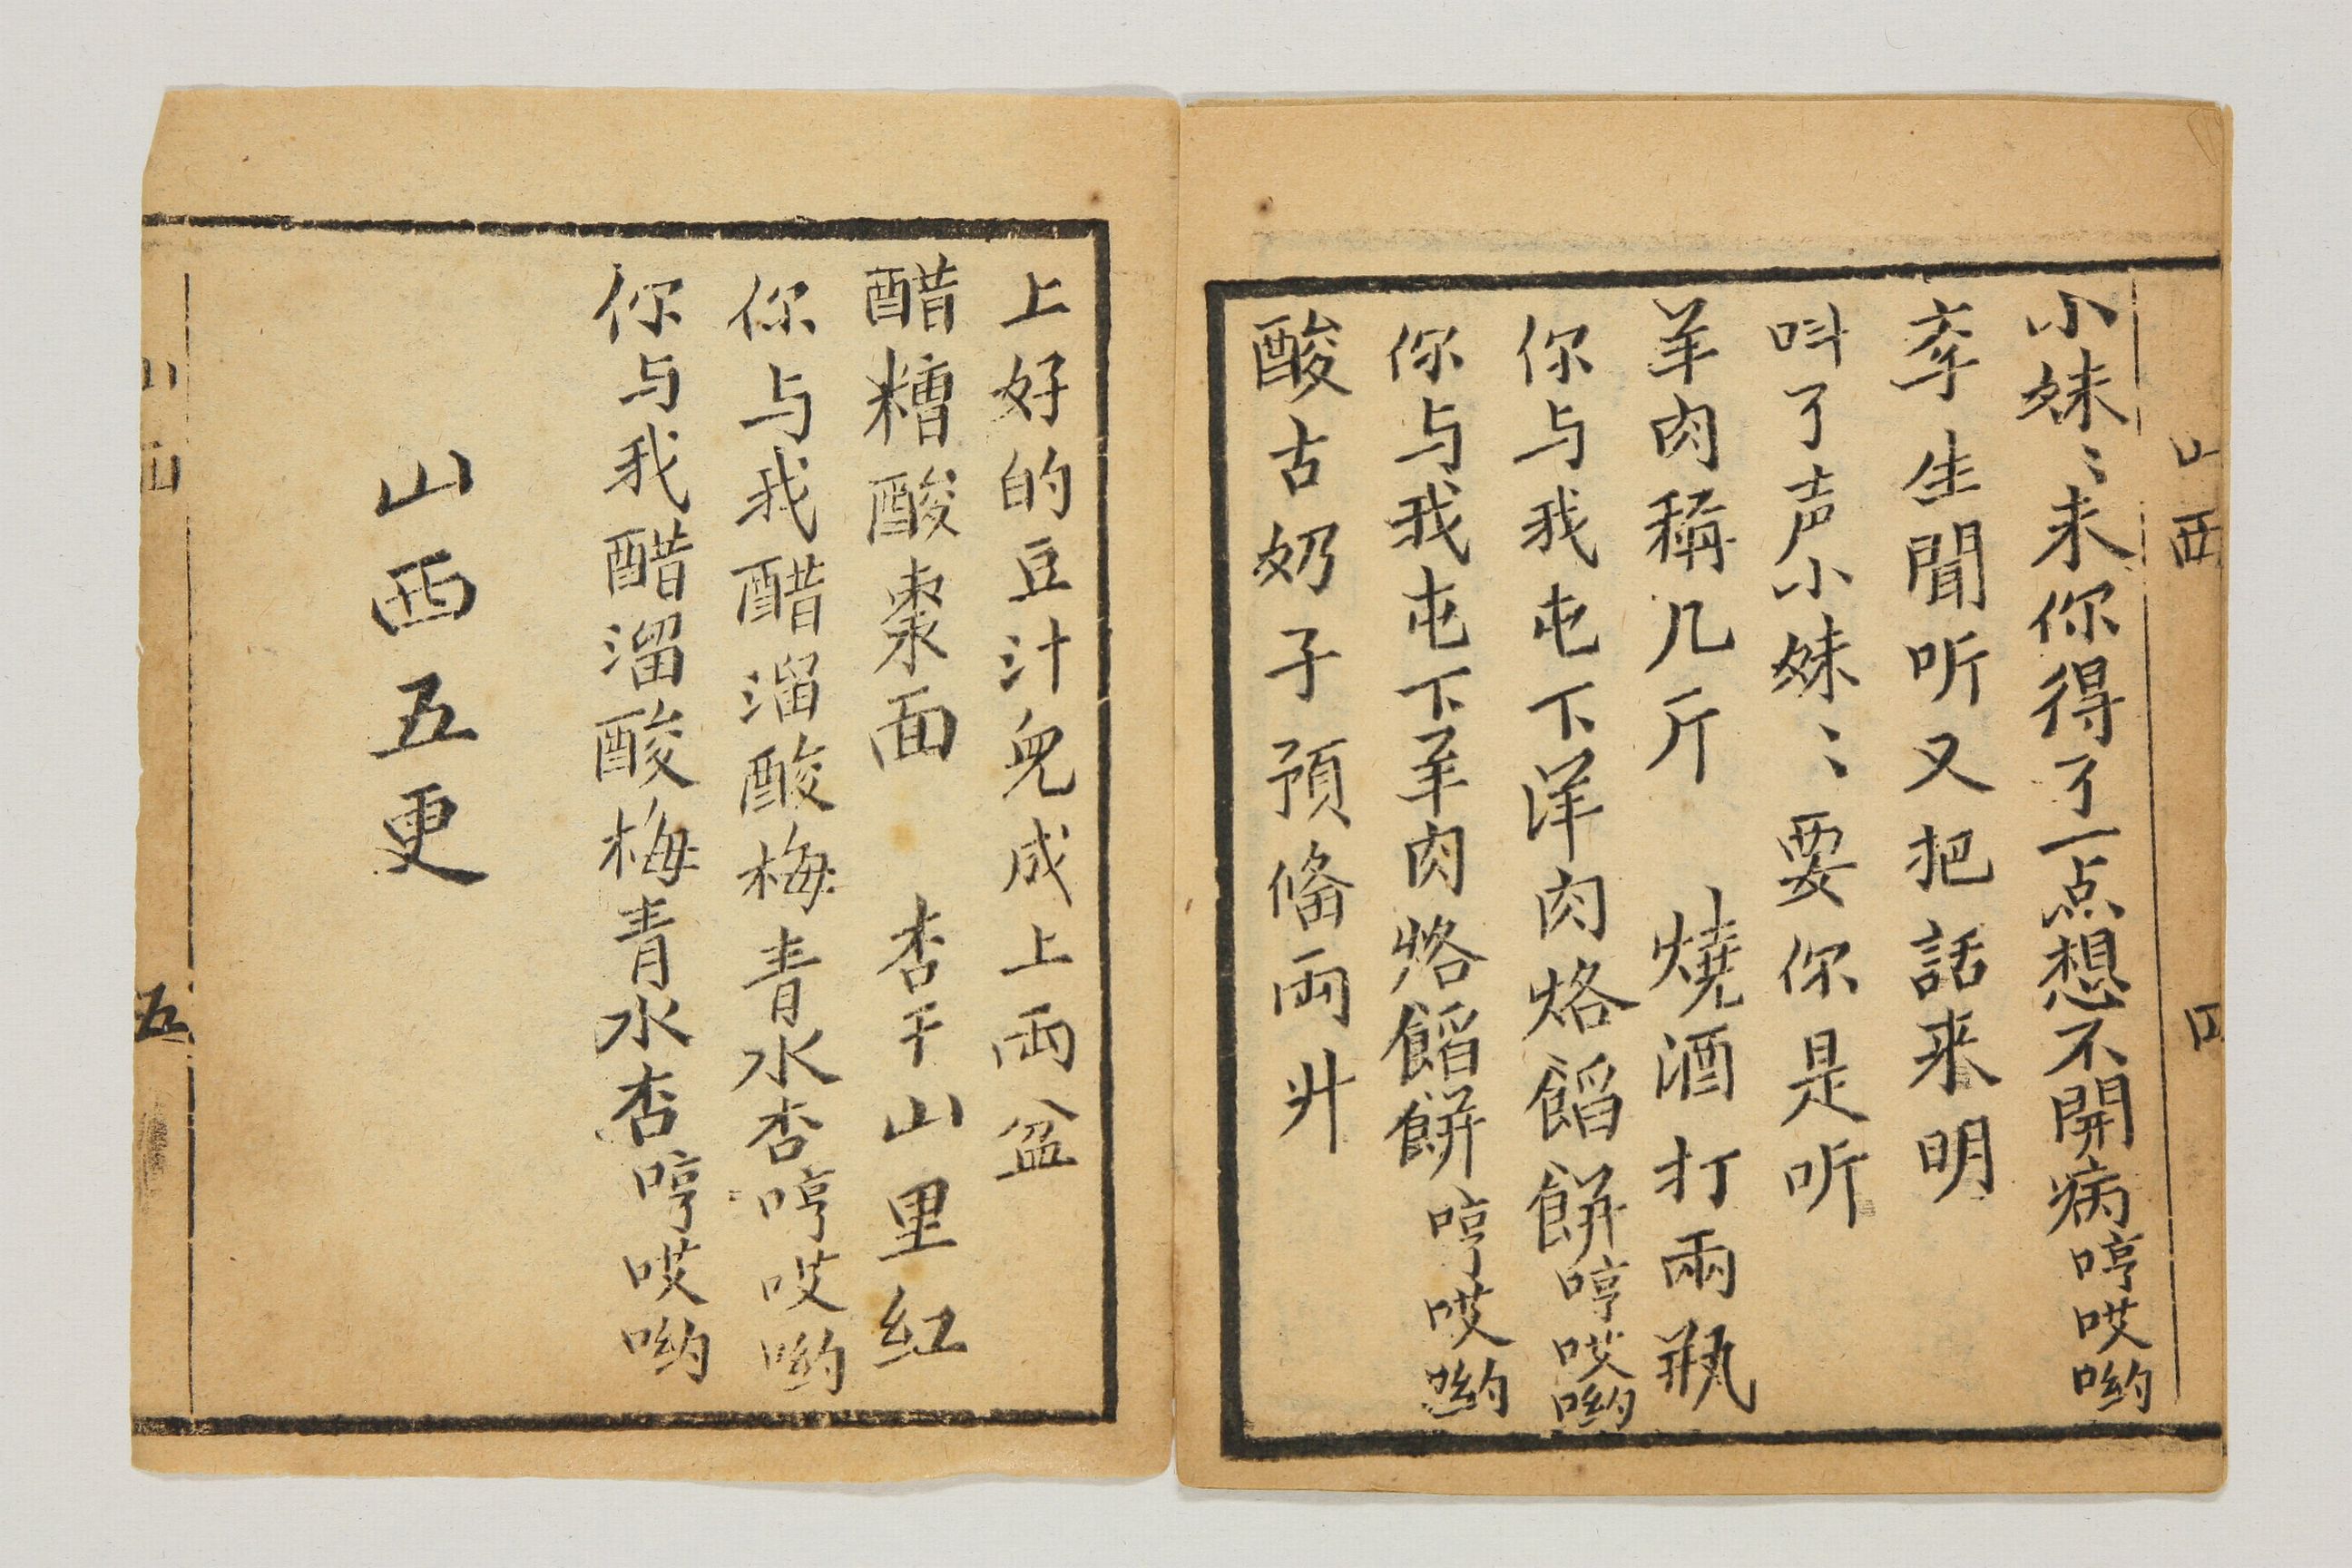 小妹〻来你得了一点想不開病哼哎哟
孛生聞听又把話来明
呌了声小妹〻要你是听
羊肉稱几斤 燒酒打兩瓶
你与我屯下洋肉烙餡餅哼哎哟
你与我屯下羊肉烙餡餅哼哎哟
酸古奶子預俻両爿
山西 四
上好的豆汁兒成上両盆
醋糟酸棗面 杏干山里红
你与我醋溜酸梅青水杏哼哎哟
你与我醋溜酸梅青水杏哼哎哟
山西五更
山西 五